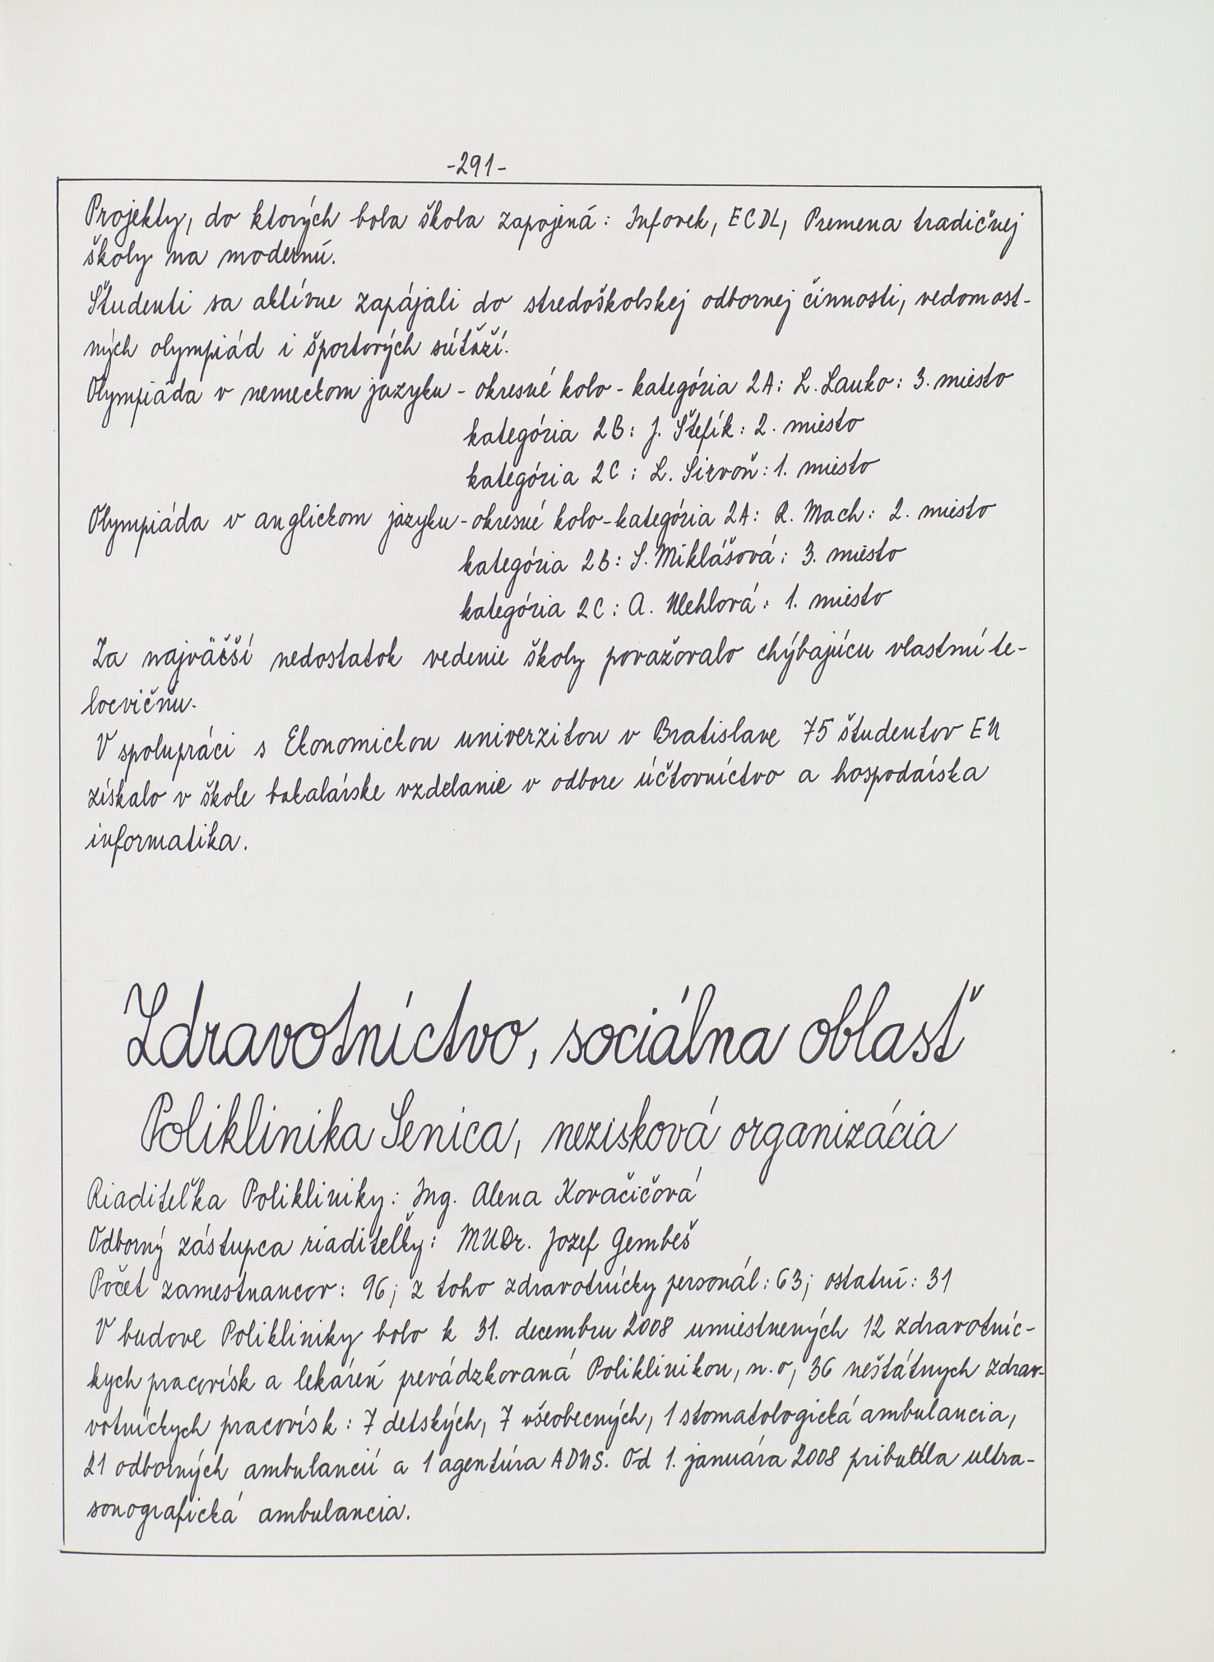 -291-
Projekty, do ktorých bola škola zapojená: Infovek, ECDL, Premena tradičnej
školy na modernú.
Študenti sa aktívne zapájali do stredoškolskej odbornej činnosti, vedomost-
ných olympiád i športových súťaží.
Olympiáda v nemeckom jazyku - okresné kolo - kategória 2A: L. Lauko: 3. miesto
kategória 2B: J. Štefík: 2. miesto
kategória 2C: L. Sirvoň: 1. miesto
Olympiáda v anglickom jazyku - okresné kolo - kategória 2A: R. Mach: 2. miesto
kategória 2B: S. Miklášová: 3. miesto
kategória 2C: A. Uehlová: 1. miesto
Za najväčší nedostatok vedenie školy považovalo chýbajúcu vlastnú te-
locvičňu.
V spolupráci s Ekonomickou univerzitou v Bratislave 75 študentov EU
získalo v škole bakalárske vzdelanie v odbore účtovníctvo a hospodárska
informatika.
Zdravotníctvo, sociálna oblasť
Poliklinika Senica, nezisková organizácia
Riaditeľka Polikliniky: Ing. Alena Kovačičová
Odborný zástupca riaditeľky: MUDr. Jozef Gembeš
Počet zamestnancov: 96; z toho zdravotnícky personál: 63; ostatní: 31
V budove Polikliniky bolo k 31. decembru 2008 umiestnených 12 zdravotníc-
kych pracovísk a lekáreň prevádzkovaná Poliklinikou, n. o, 36 neštátnych zdrav-
votníckych pracovísk: 7 detských, 7 všeobecných, 1 stomatologická ambulancia,
21 odborných ambulancií a 1 agentúra ADUS. Od 1. januára 2008 pribudla ultra-
sonografická ambulancia.